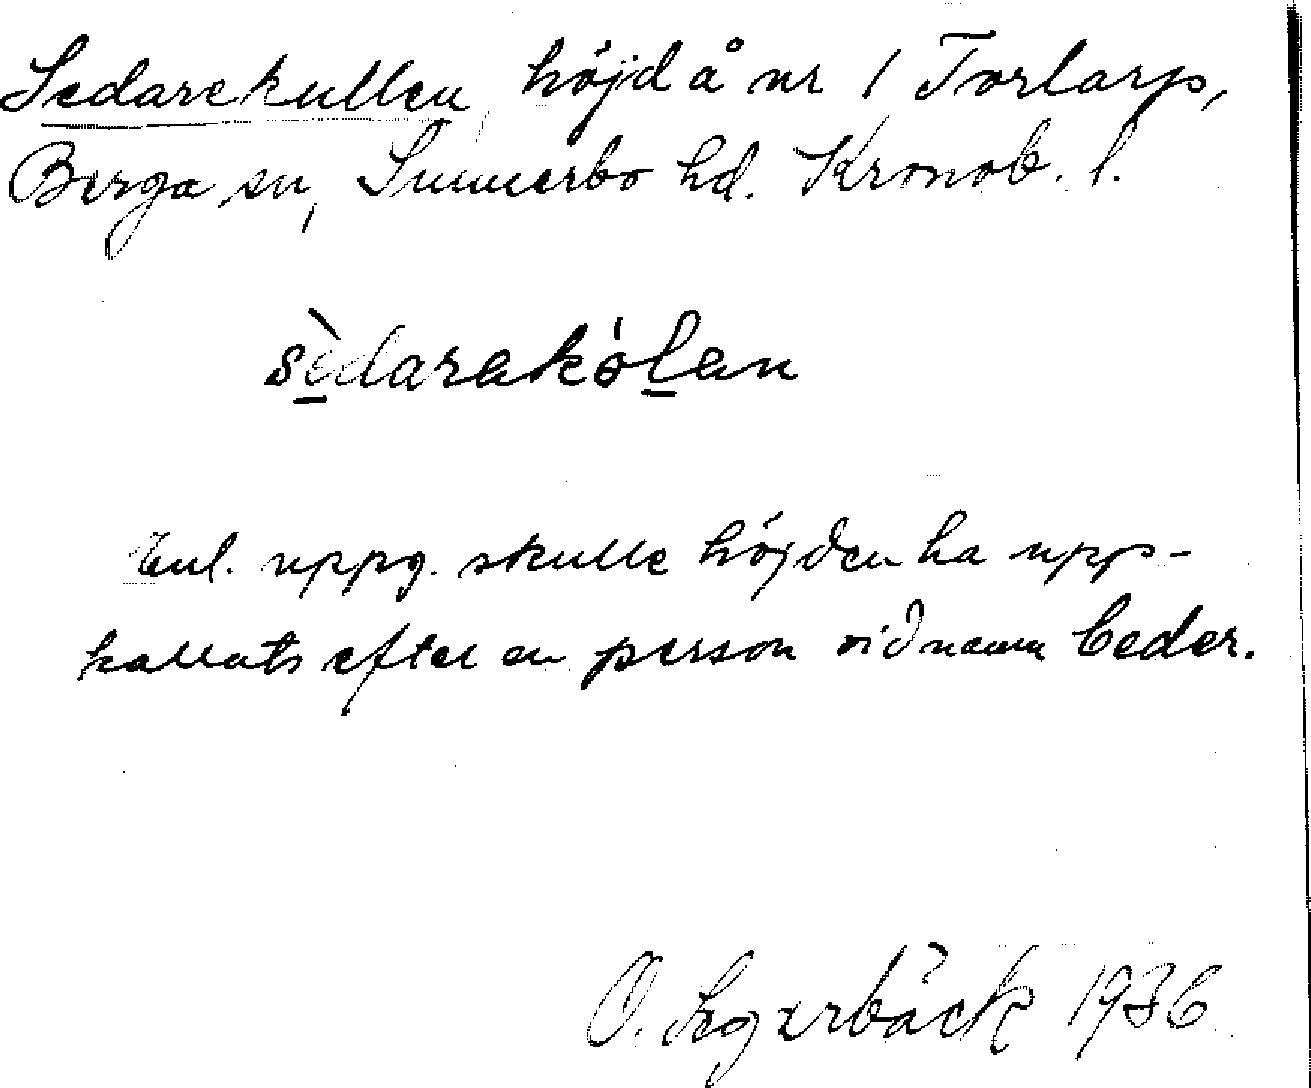 Sedarekullen, höjd å nr 1 Torlarp,
Berga sn, Sunnerbo hd. Kronob. l.
sèdarakólan
Enl. uppg. skulle höjden ha upp-
kallats efter en person vid namn Ceder.
O. Segerbäck 1936